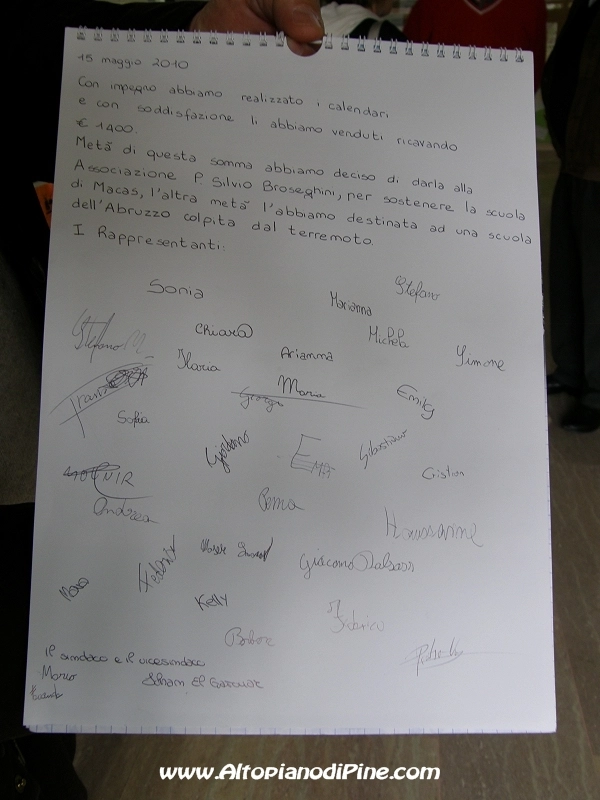 15 maggio 2010
Con impegno abbiamo realizzato i calendari
e con soddisfazione li abbiamo venduti ricavando
€ 1400.
Metà di questa somma abbiamo deciso di darla alla
Associazione P. Silvio Broseghini, per sostenere la scuola
di Macas, l'altra metà l'abbiamo destinata ad una scuola
dell'Abruzzo colpita dal terremoto.
I Rappresentanti:
Stefano
Sonia
Marianna
Chiara
Michela
Stefano M.
Arianna
Simone
Ilaria
Maria
Emily
Sofia
Giordano
Sebastiano
Cristian
Andrea
Houssamine
Giacomo Dalsass
Federico
Kelly
Il sindaco e il vicesindaco
Marco
www.AltopianodiPine.com